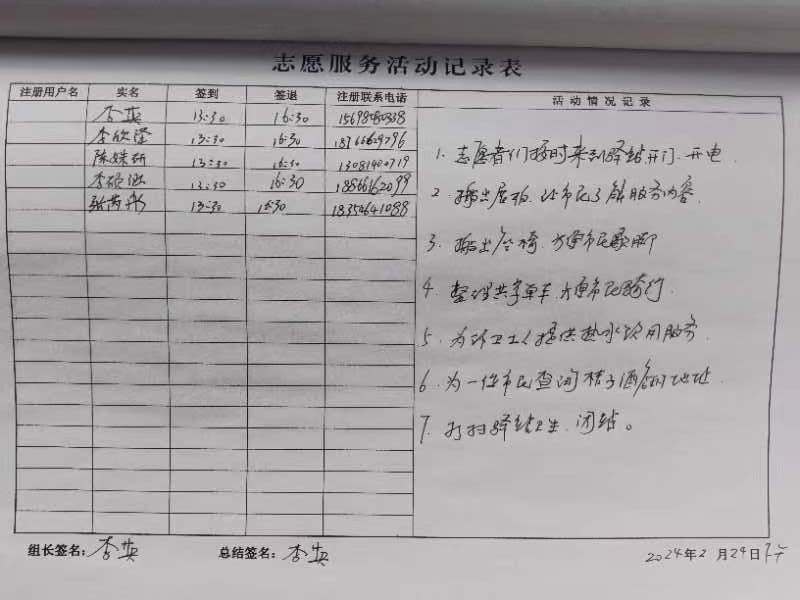 志愿服务活动记录表
注册用户名 实名 签到 签退 注册联系电话 活动情况记录
李英 13:30 16:30
李欣莹 13:30 16:30
13:30 16:30
13:30 16:30
13:30 16:30 18350641088
1. 志愿者们按时来到驿站开门、开电
2. 搬出展板，让市民了解服务内容
3. 搬出座椅，方便市民歇脚
4. 整理共享单车，方便市民骑行.
5. 为环卫工人提供热水饮用服务
6. 为一位市民查询桔子酒店的地址
7. 打扫驿站卫生、闭站。
组长签名：李英 总结签名：李英 2024年2月29日